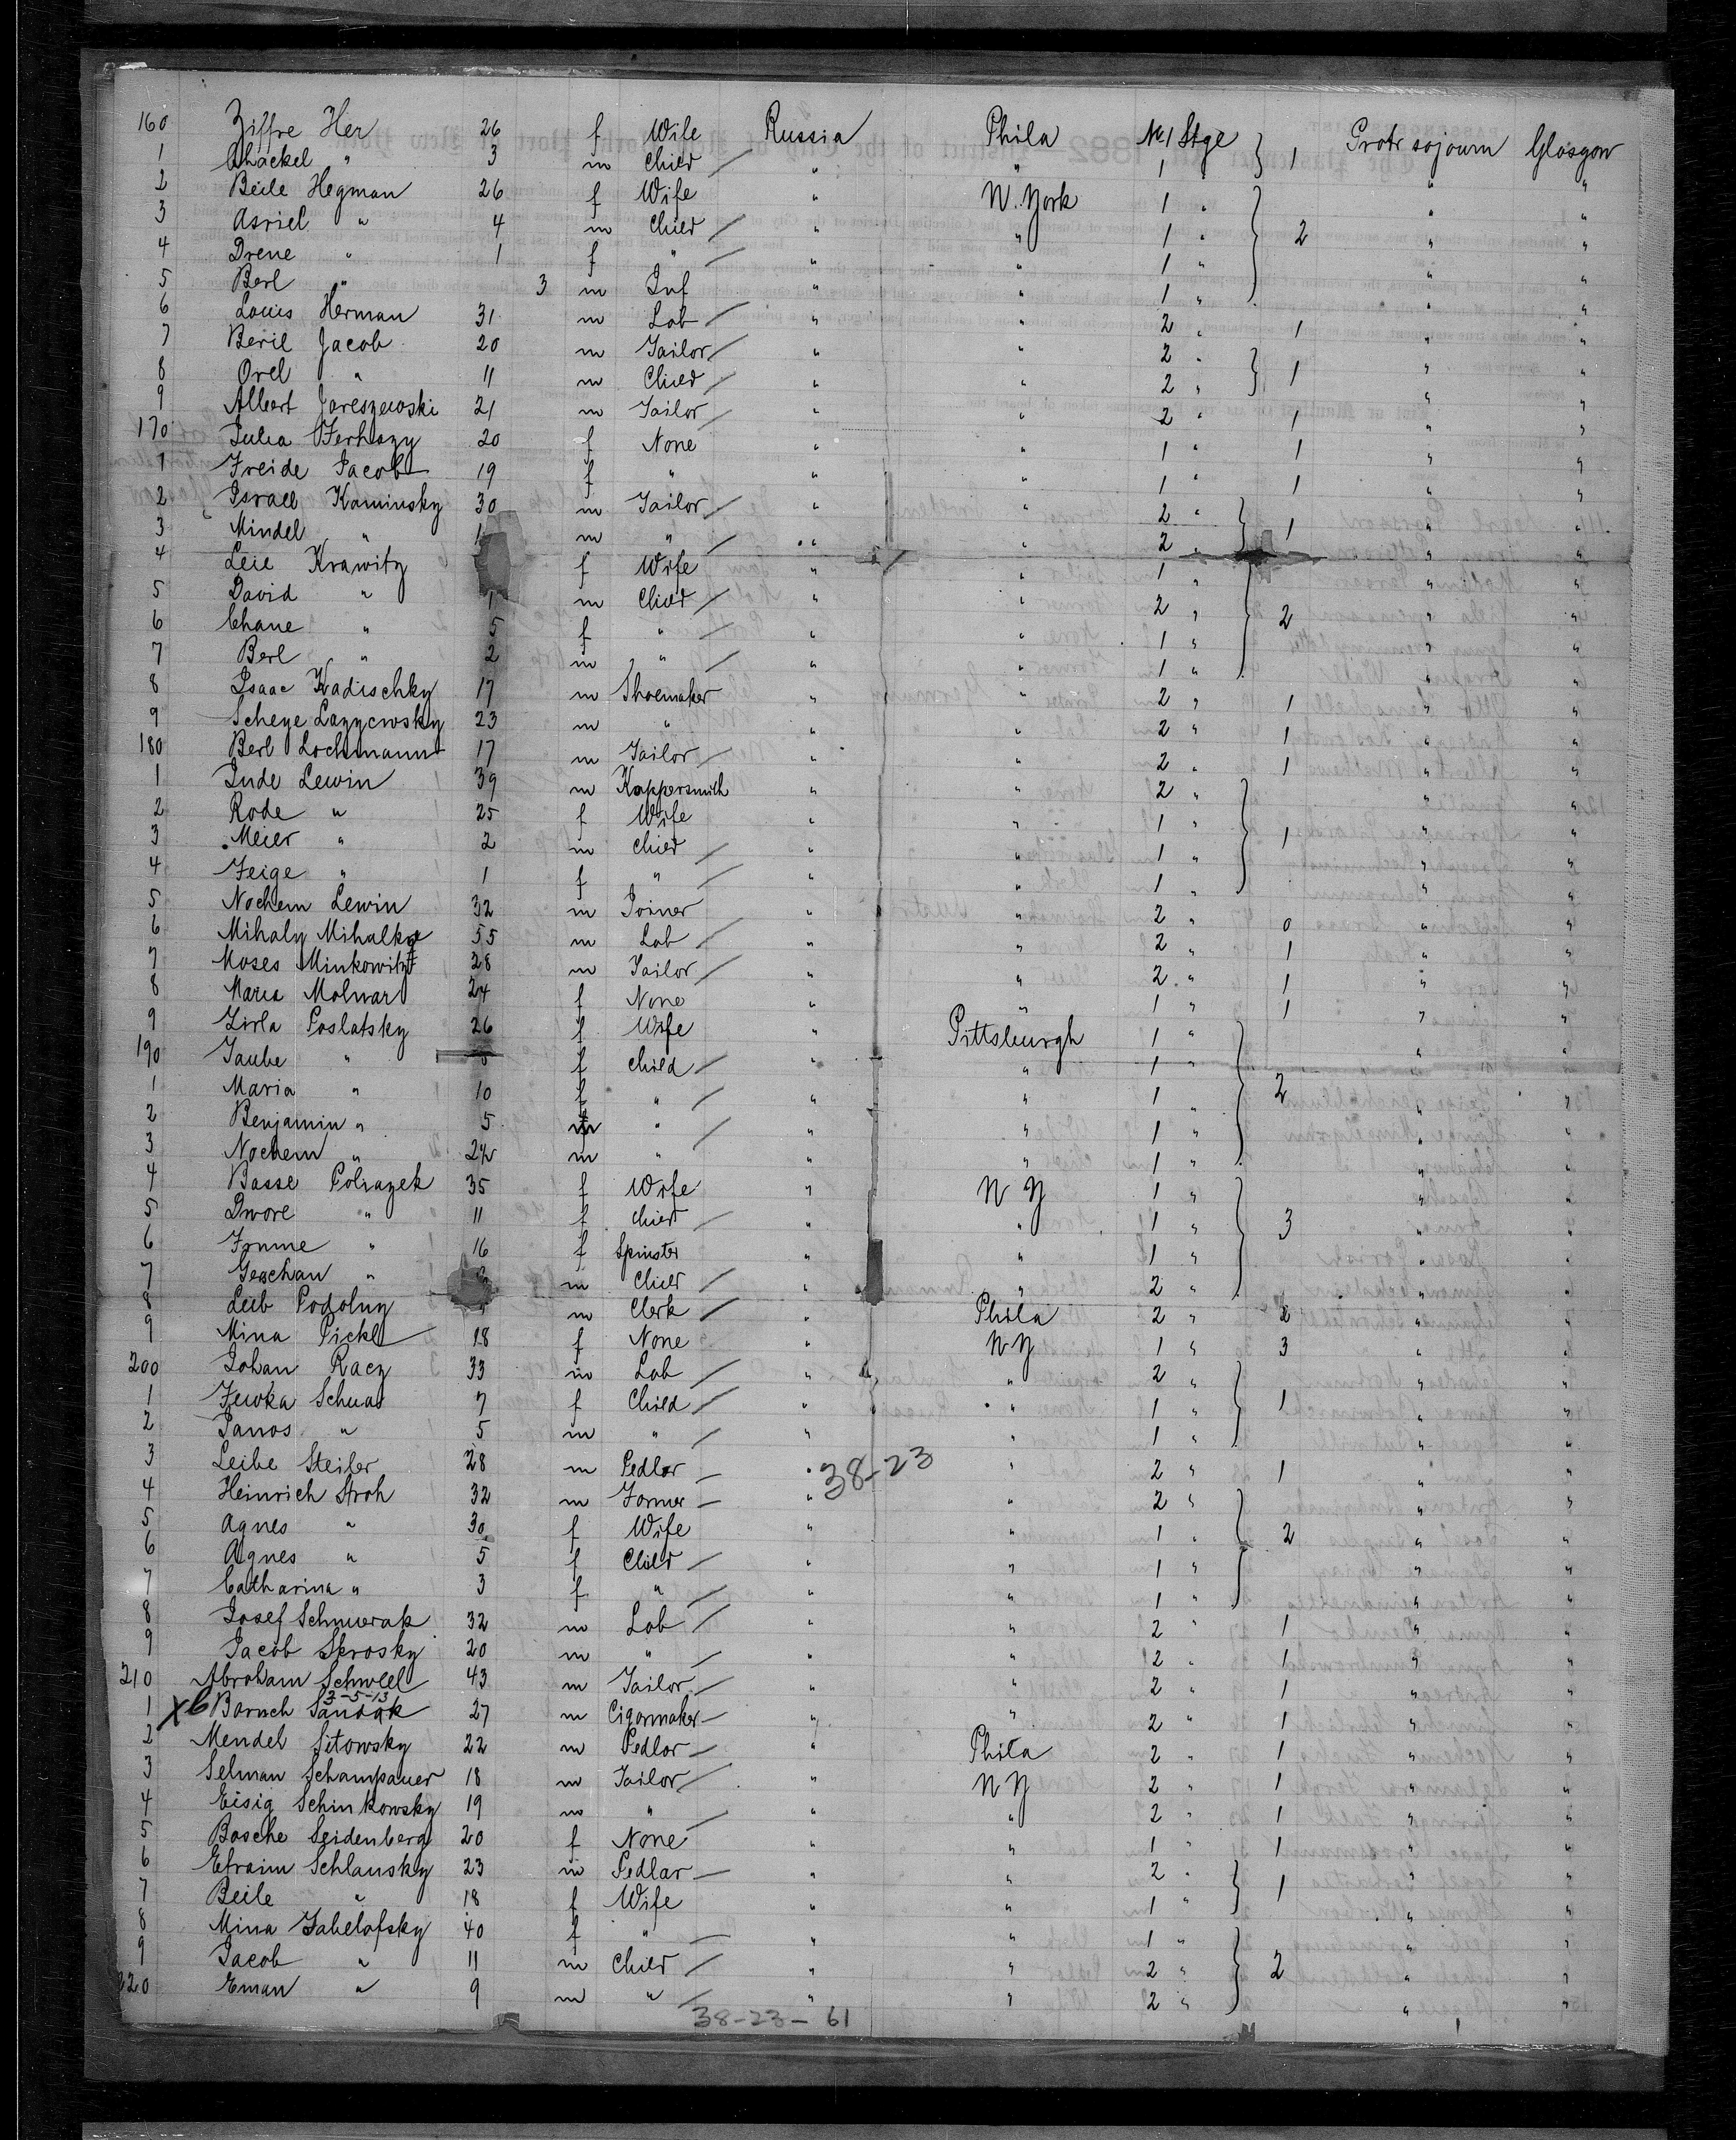 160 Ziffre Her 26 f Wife Russia Phila No 1 Stge 1 Protr sojourn Glasgow
1 Chackel " 3 m Child / " " 1 " "
2 Beile Hegman 26 f Wife " N. York 1 " " "
3 Asriel " 4 m Child / " " 1 " 2 " "
4 Drene " 1 f " / " " 1 " " "
5 Berl " 3 m Inf " " 1 " " "
6 Louis Herman 31 m Lab / " " 2 " 1 " "
7 Beril Jacob 20 m Tailor / " " 2 " " "
8 Orel " 11 m Child / " " 2 " 1 " "
9 Albert Jareszewski 21 m Tailor / " " 2 " 1 " "
170 Julia 20 f None " " 1 " 1 " "
1 Freide Jacob 19 f " " " 1 " 1 " "
2 Israel Kaminsky 30 m Tailor / " " 2 " " "
3 Mindel " m " / " " 2 " 1 " "
4 Leie Krawitz f Wife " " 1 " " "
5 David " m Child / " " 2 " " "
6 Chane " 5 f " / " " 1 " 2 " "
7 Berl " 2 m " / " " 1 " " "
8 Isaac Kadischky 17 m Shoemaker " " 2 " 1 " "
9 Scheye Lazycwsky 23 m " " " 2 " 1 " "
180 Berl Lochmann 17 m Tailor / " " 2 " 1 " "
1 Jude Lewin 39 m Koppersmith " " 2 " " "
2 Rode " 25 f Wife " " 1 " " "
3 Meier " 2 m Child / " " 1 " 1 " "
4 Feige " 1 f " / " " 1 " " "
5 Nochem Lewin 32 m Joiner " " 2 " 0 " "
6 Mihaly 55 m Lab / " " 2 " 1 " "
7 Moses Minkowitz 28 m Tailor / " " 2 " 1 " "
8 Maria Molnar 24 f None " " 1 " 1 " "
9 Zirla Poslatsky 26 f Wife " Pittsburgh 1 " " "
190 Taube " f Child / " " 1 " " "
1 Maria " 10 f " / " " 1 " 2 " "
2 Benjamin " 5 m " / " " 1 " " "
3 Nochem " m " " " 1 " " "
4 Basse Polrazek 35 f Wife " N Y 1 " " "
5 Dwore " 11 f Child / " " 1 " 3 " "
6 Frume " 16 f Spinster " " 1 " " "
7 Geschan " m Child / " " 2 " " "
8 Leib Podolny m Clerk / " Phila 2 " 2 " "
9 Mina Pickl 18 f None " N Y 1 " 3 " "
200 Johan Racz 33 m Lab / " " 2 " " "
1 Zewka Schuas 7 f Child / " " 1 " 1 " "
2 Janos " 5 m " / " " 1 " " "
3 Leibe Steiler 28 m Pedlar – " 38-23 " 2 " 1 " "
4 Heinrich Stroh 32 m Farmer – " " 2 " " "
5 Agnes " 30 f Wife " " 1 " 2 " "
6 Agnes " 5 f Child / " " 1 " " "
7 Catharina " 3 f " / " " 1 " " "
8 Josef Schnurak 32 m Lab / " " 2 " 1 " "
9 Jacob Skrosky 20 m " / " " 2 " 1 " "
210 Abraham Schweel 43 m Tailor / " " 2 " 1 " "
3-5-13
1 X6 Baruch Sandak 27 m Cigarmaker – " " 2 " 1 " "
2 Mendel Sitowsky 22 m Pedlar – " Phila 2 " 1 " "
3 Selman Schampauer 18 m Tailor / " N Y 2 " 1 " "
4 Eisig Schinkowsky 19 m " / " " 2 " 1 " "
5 Basche Seidenberg 20 f None " " 1 " 1 " "
6 Efraim Schlansky 23 m Pedlar – " " 2 " " "
7 Beile " 18 f Wife " " 1 " 1 " "
8 Mina Jabelofsky 40 f " – " " 1 " " "
9 Jacob " 11 m Child / " " 2 " 2 " "
220 Eman " 9 m " / " " 2 " " "
38-23-61